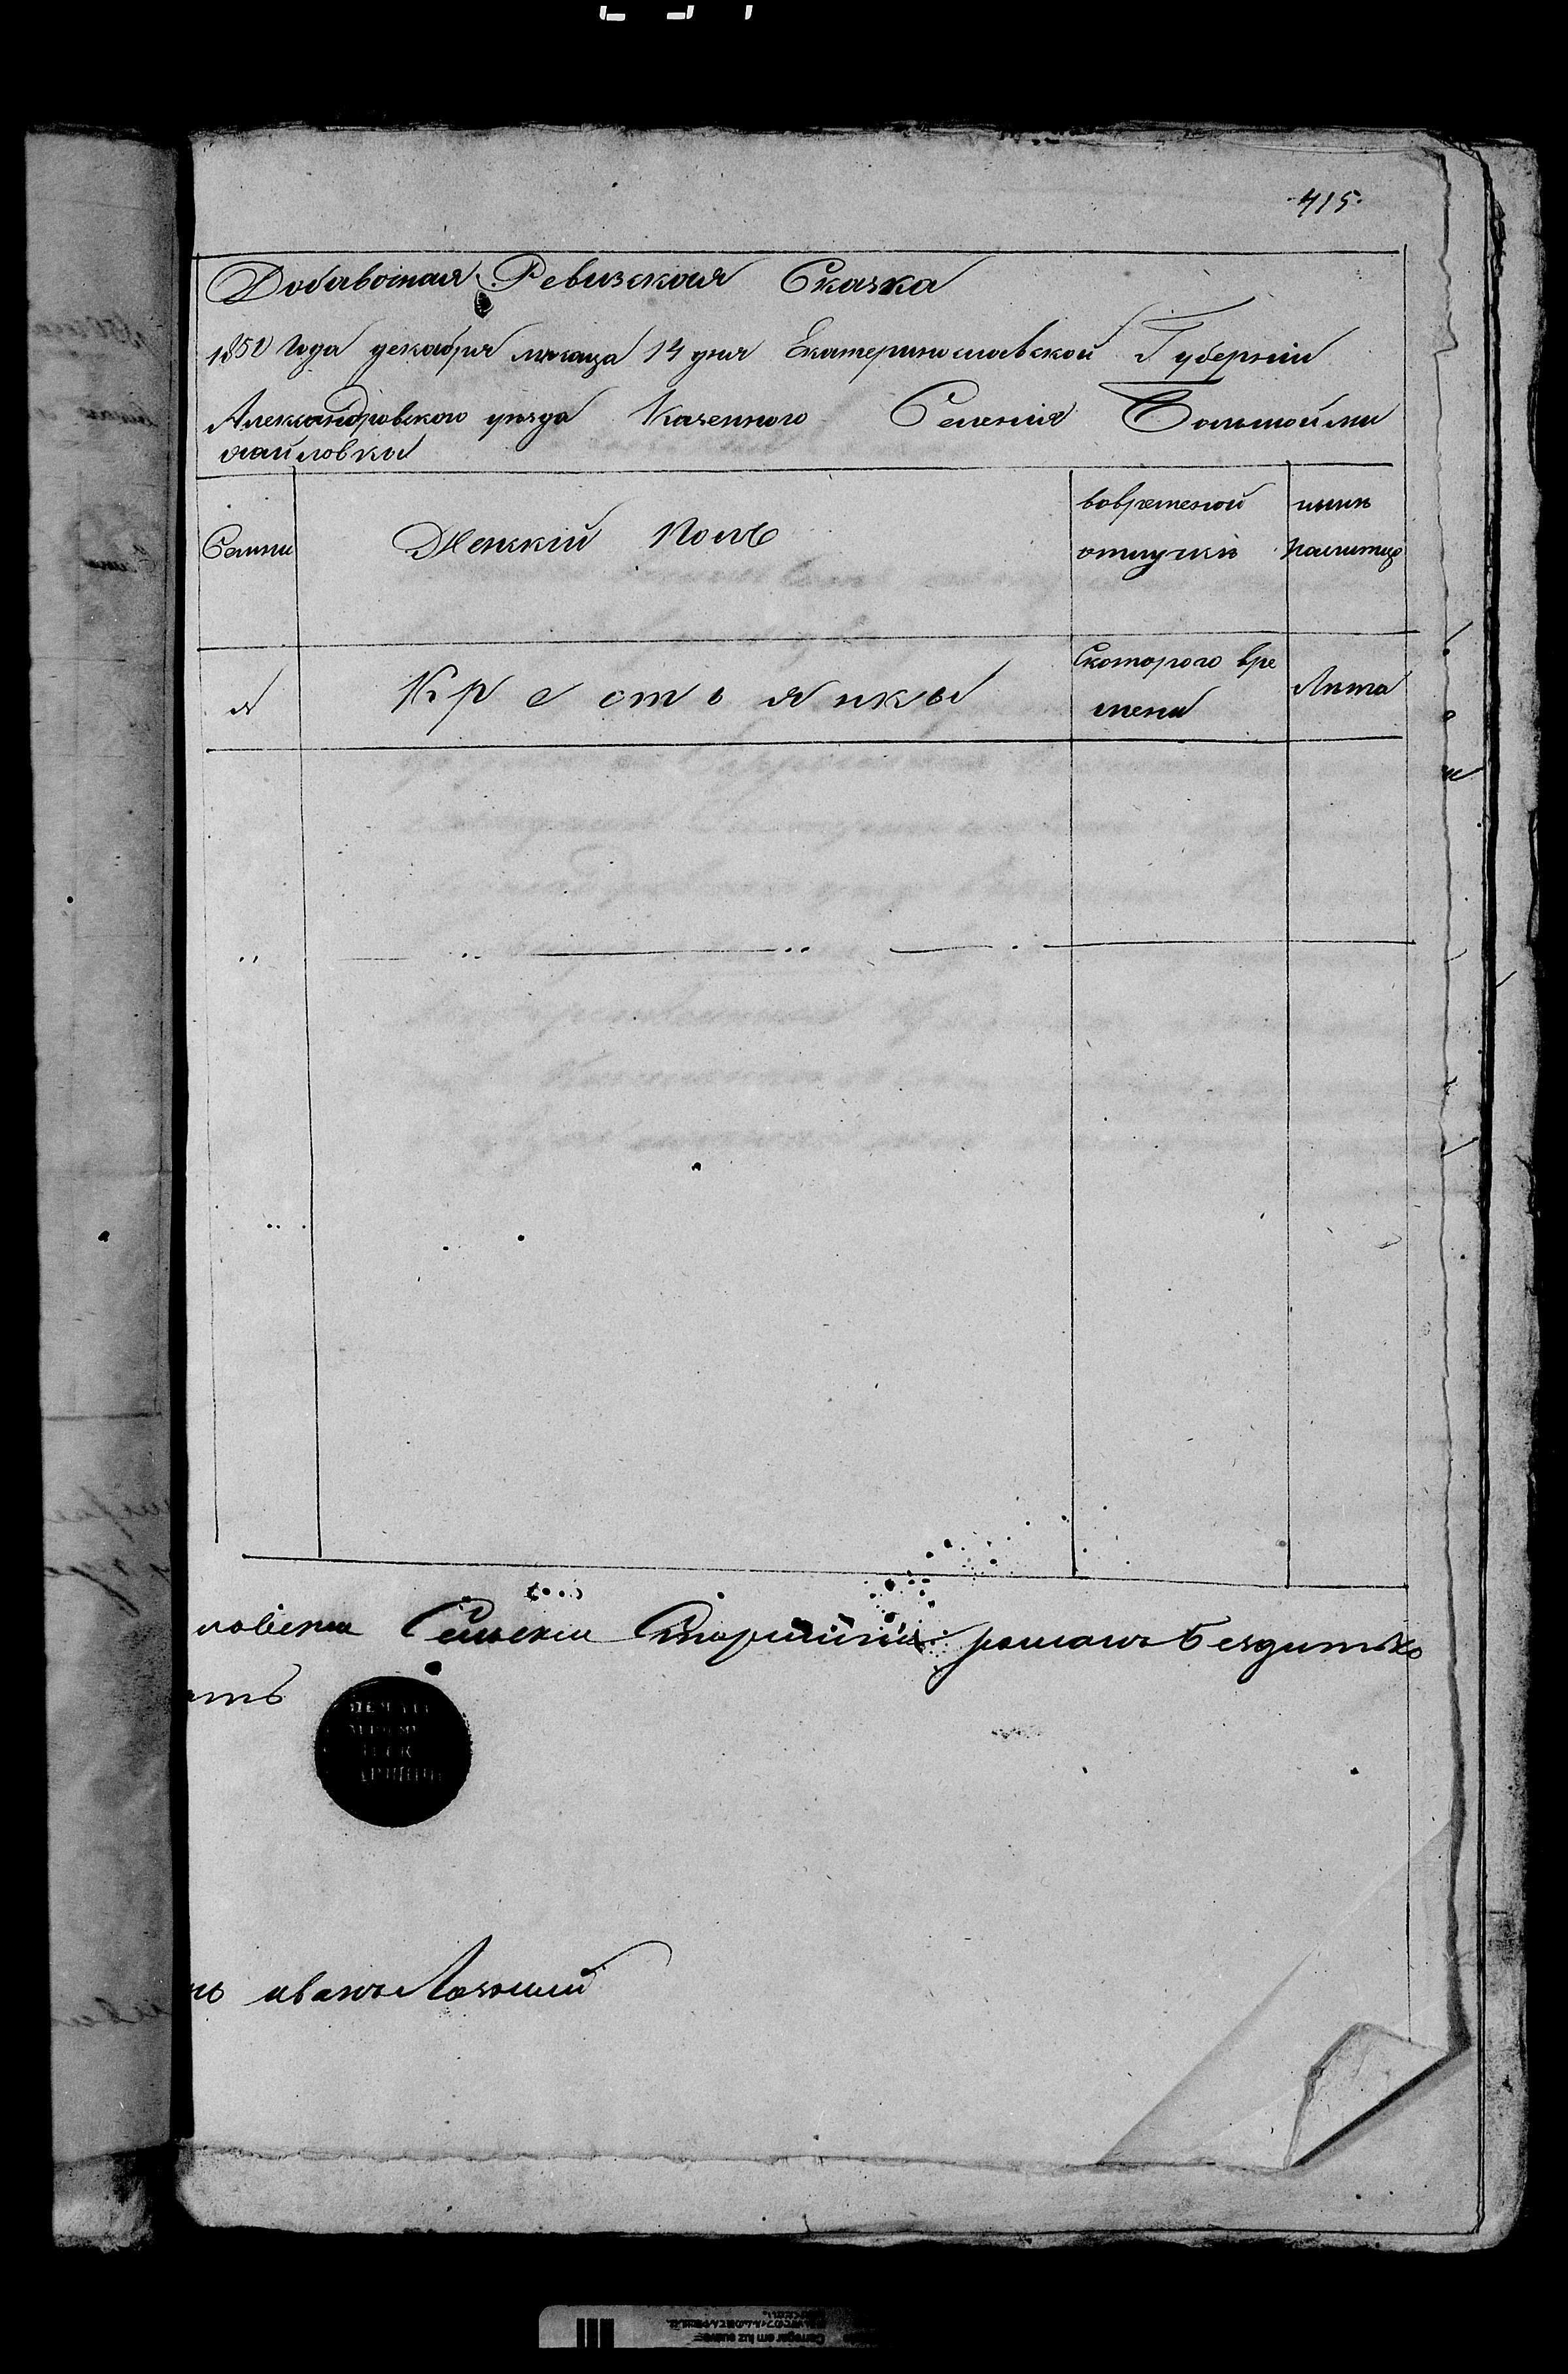 415.
Добавочная Ревизская Сказка
1850 Года декабря месяца 14 дня Екатеринославской Губерніи
Александровского уезда Казенного Селенія Большой ми
хайловки
Семьи
Женскій Полъ
вовременой
отлучкѣ
ныне
налицо
я
Крестьянки
Скоторого вре
мени
Лѣта
Сельскій Старшина романъ Бездитько
иванъ Лозовый